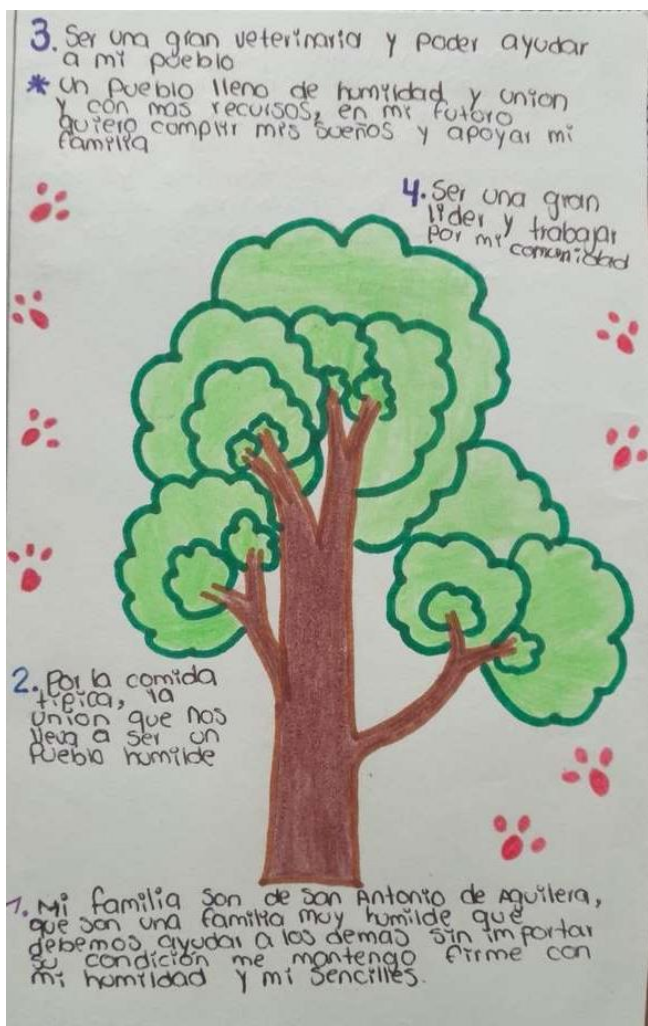 3. Ser una gran veterinaria y poder ayudar
a mi pueblo
* Un pueblo lleno de humildad y union
y con mas recursos, en mi futoro
quiero complir mis sueños y apoyar mi
familia
4. Ser una gran
lider y trabajar
por mi comunidad
2. Por la comida
tipica, la
union que nos
lleva a ser un
Pueblo humilde
1. Mi familia son de San Antonio de Aguilera,
que son una familia muy humilde que
debemos ayudar a los demas sin importar
su condición me mantengo firme con
mi humildad y mi sencilles.